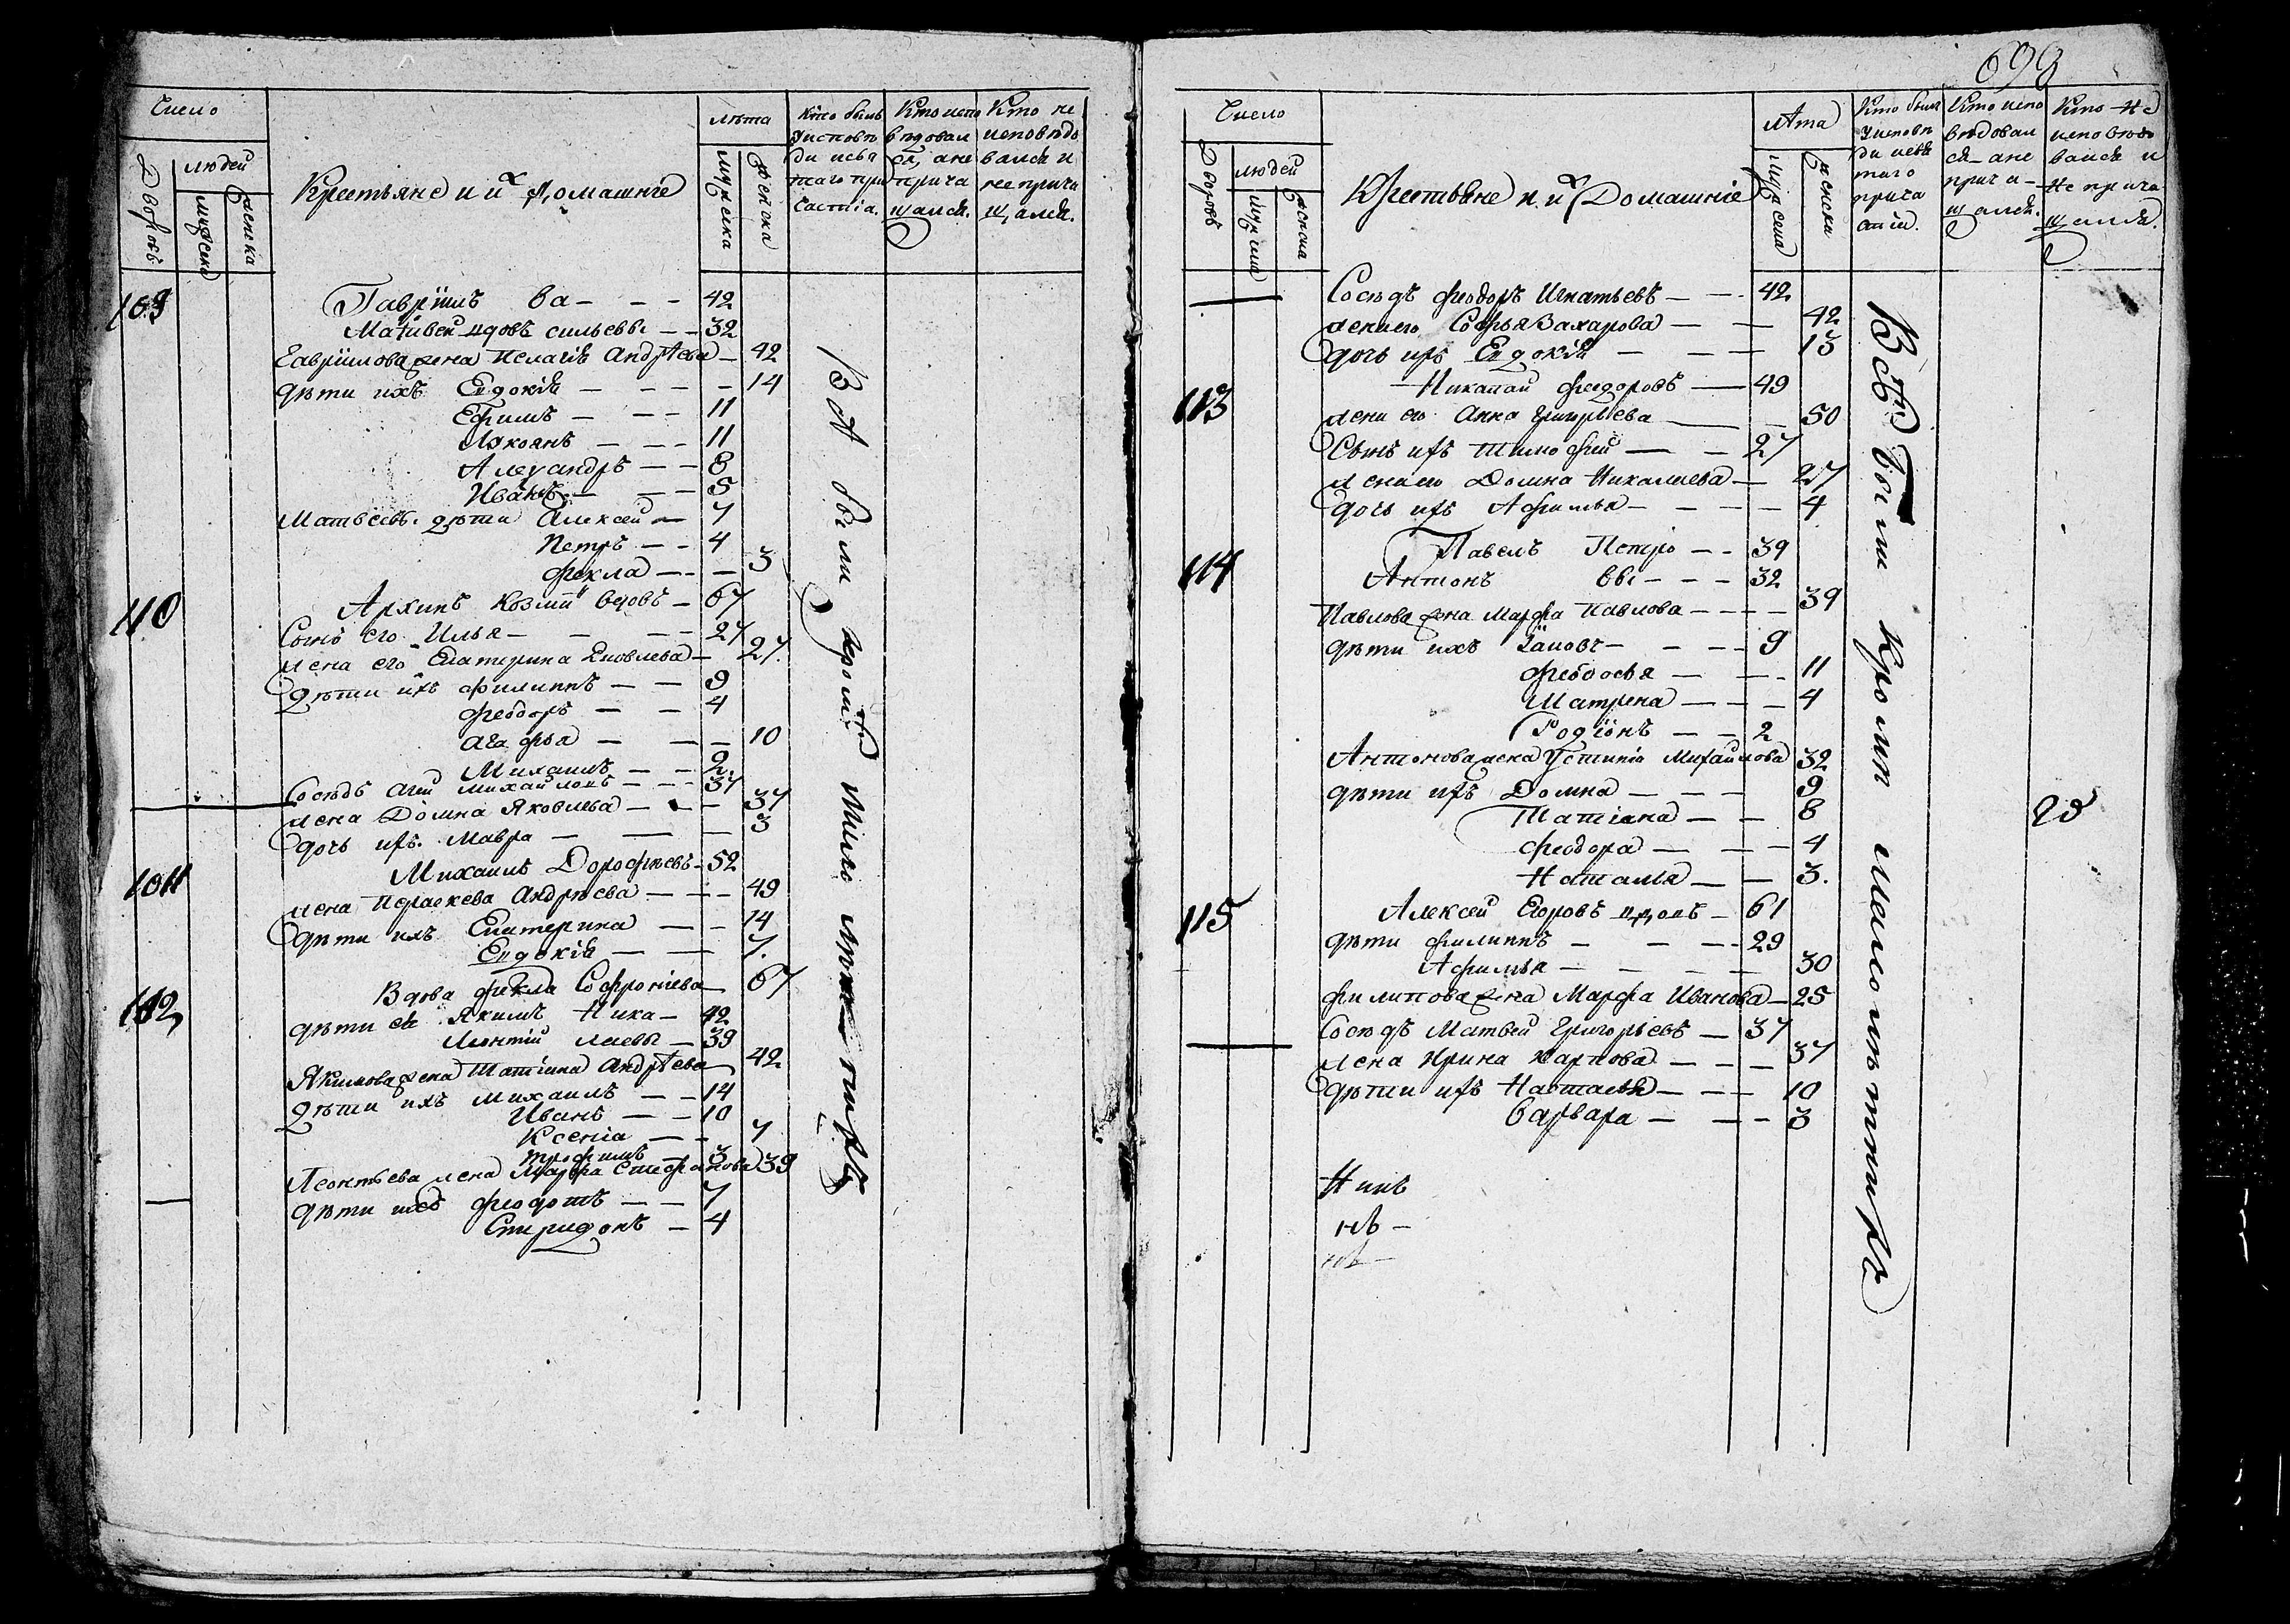 Число
людей
Дворовъ
мужеска
женска
Крестьяне и их домашніе
лѣта
мужеска
женска
Кто былъ
у исповѣ
ди и свя
таго при
частія.
Кто испо
вѣдовал
ся, а не
прича
щался.
Кто не
исповѣдо
вался и
не прича
щался.
109
Гавріилъ Ва - - - 42
Матѳей вдовъ сильевы - - 32
Гавріилова жена Пелагія Андрѣева - 42
дѣти ихъ Евдокія - - - - 14
Ефимъ - - - 11
- - - 11
Александръ - - 8
Иванъ - - - 5
Матвеевы дѣти Алексей - 7
Петръ - - 4
Фекла - - - 3
110
Архипъ Козминъ вдовъ - 67
Сынъ его Илья - - - - 27
жена его Екатерина Яковлева - 27.
дѣти ихъ Филиппъ - - 9
Феодоръ - - 4
Агафья - - - 10
Михаилъ - - 2.
Сосѣдъ Михайловъ - - - 37
жена Домна Яковлева - - - 37
дочь ихъ Мавра - - - 3
Михаилъ Дорофѣевъ - 52
жена Параскева Андрѣева - - - 49
дѣти ихъ Екатерина - - 14
Евдокія - - 7.
112
Вдова Фекла Софроніева - 67
дѣти ея Якимъ Ника - 42
Леонтій лаевы - 39
Якимова жена Татіана Андрѣева 42
дѣти ихъ Михаилъ - - 14
Иванъ - - 10
Ксенія - - 7
Трофимъ - 3
Леонтьева жена Марфа Стефанова 39
дѣти ихъ Феодотъ - - 7
Спиридонъ - 4
Всѣ были кромѣ
698
Число
людей
Дворовъ
женска
Крестьяне и их Домашніе
лѣта
женска
Кто былъ
у исповѣ
ди и свя
таго
прича
стіи.
Кто испо
вѣдовал
ся - а не
прича -
щался.
Кто не
исповѣдо
вался и
не прича
щался.
Сосѣдъ Феодоръ Игнатьевъ - - - 42
жена его Софья Захарова - - 42
дочь ихъ Евдокія - - - 13
113
Николай Феодоровъ - 49
жена его Анна Григорьева - - 50
Сынъ ихъ Тимофей - - 27
жена его Домна Николаева - 27
дочь ихъ Афимья - - - - 4
114
Павелъ Петро - - 39
Антонъ вы - - - 32
Павлова жена Марфа Павлова - - - - 39
дѣти ихъ - - - - 9
Феодосья - - - 11
Матрена - - - 4
Родіонъ - - 2
Антонова жена Устинія Михайлова 32
дѣти ихъ Домна - - - 9
Татіана - - 8
Феодора - - - 4
Наталья - - 3.
115
Алексей Егоровъ вдовъ - 61
дѣти Филиппъ - - - - 29
Афимья - - - - 30
Филипова жена Марфа Иванова - 25
Сосѣдъ Матвей Григорьевъ - 37
жена Ирина Карпова - - - 37
дѣти ихъ Наталья - - - 10
Варвара - - - 3
Всѣ были Кроми малолѣтныхъ